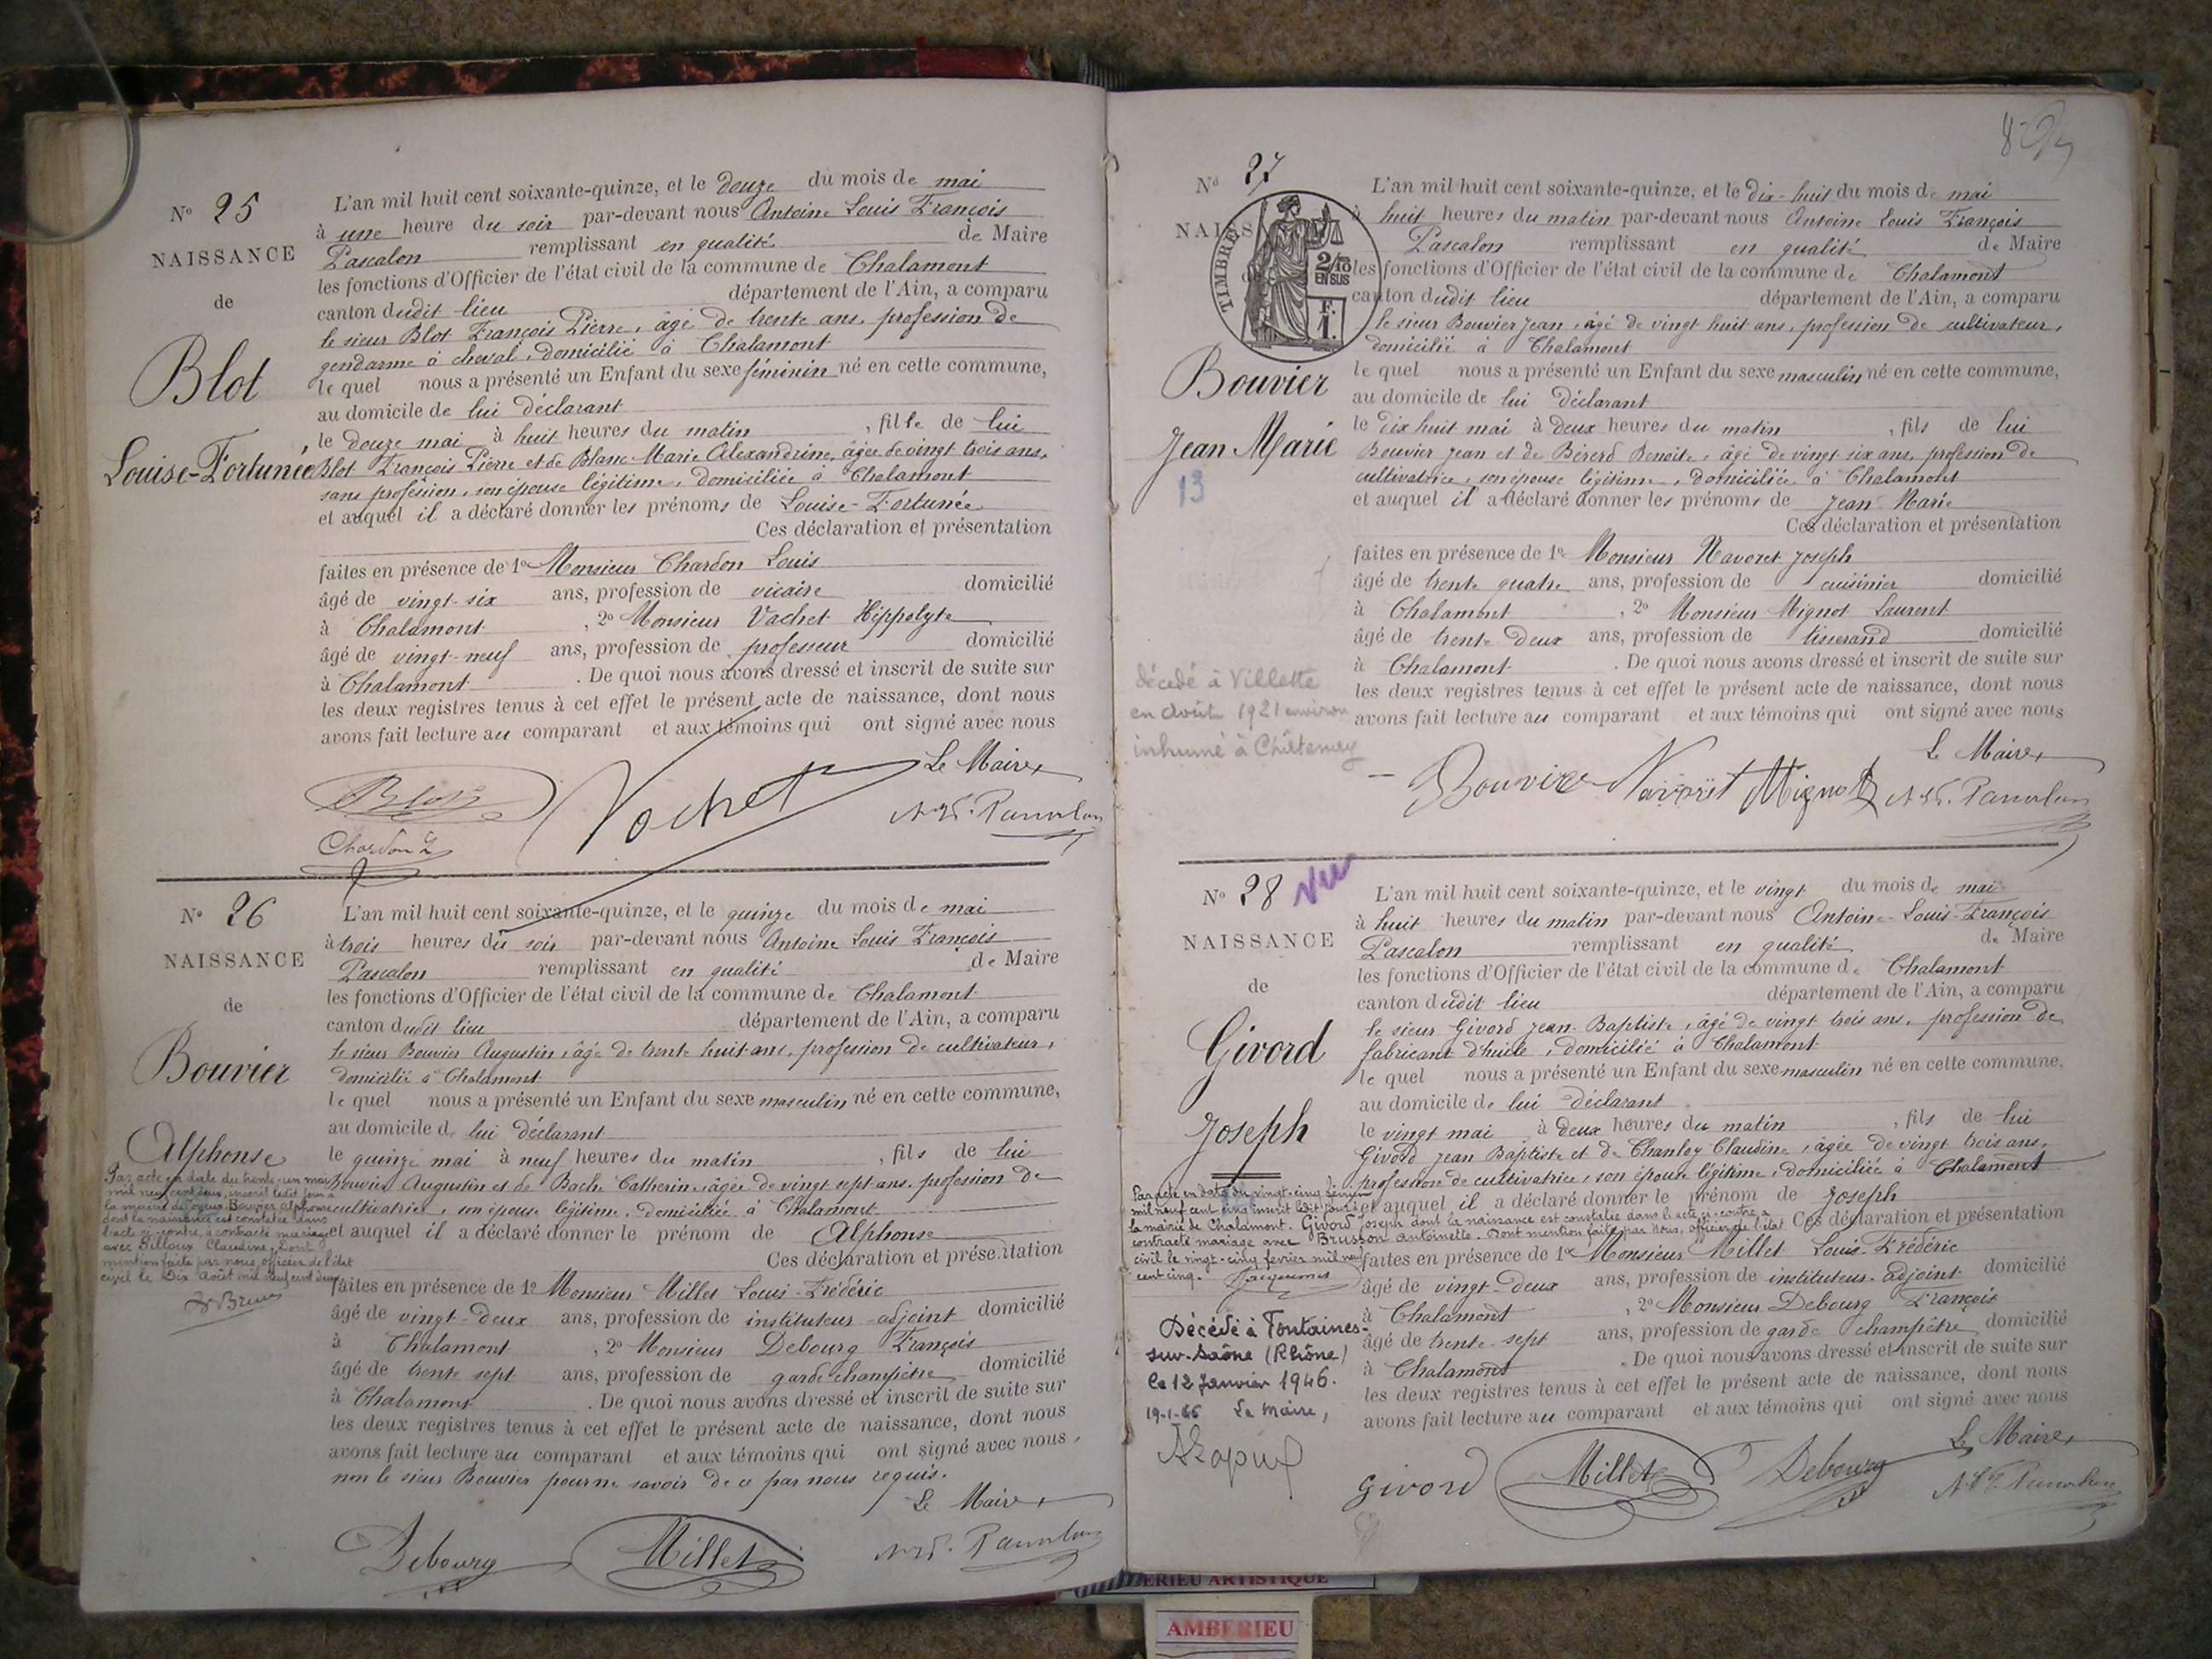 N° 25
NAISSANCE
de
Blot
Louise-Fortunée
L'an mil huit cent soixante-quinze, et le douze du mois de mai
à une heure du soir par-devant nous Antoine Louis François
Pascalon remplissant en qualité de Maire
les fonctions d'Officier de l'état civil de la commune de Chalamont
canton dudit lieu département de l'Ain, a comparu
le sieur Blot François Pierre, âgé de trente ans, profession de
gendarme à cheval, domicilié à Chalamont
le quel nous a présenté un Enfant du sexe féminin né en cette commune,
au domicile de lui déclarant
le douze mai à huit heures du matin, fille de lui
Blot François Pierre et de Blanc Marie Alexandrine, âgée de vingt trois ans,
sans profession, son épouse légitime, domiciliée à Chalamont
et auquel il a déclaré donner les prénoms de Louise-Fortunée
Ces déclaration et présentation
faites en présence de 1° Monsieur Chardon Louis
âgé de vingt-six ans, profession de vicaire domicilié
à Chalamont, 2° Monsieur Vachet Hippolyte
âgé de vingt-neuf ans, profession de professeur domicilié
à Chalamont. De quoi nous avons dressé et inscrit de suite sur
les deux registres tenus à cet effet le présent acte de naissance, dont nous
avons fait lecture au comparant et aux témoins qui ont signé avec nous
Le Maire
Blot Vachet
Chardon L
N° 26
NAISSANCE
de
Bouvier
Alphonse
Par acte en date du trente-un mai
mil neuf cent deux, inscrit ledit jour à
la mairie de Joyeux, Bouvier Alphonse
dont la naissance est constatée dans
l'acte ci-contre, a contracté mariage
avec Billoux Claudine. Dont
mention faite par nous, officier de l'état
civil le Dix Août mil neuf cent deux.
L'an mil huit cent soixante-quinze, et le quinze du mois de mai
à trois heures du soir par-devant nous Antoine Louis François
Pascalon remplissant en qualité de Maire
les fonctions d'Officier de l'état civil de la commune de Chalamont
canton dudit lieu département de l'Ain, a comparu
le sieur Bouvier Augustin, âgé de trente huit ans, profession de cultivateur,
domicilié à Chalamont
le quel nous a présenté un Enfant du sexe masculin né en cette commune,
au domicile de lui déclarant
le quinze mai à neuf heures du matin, fils de lui
Bouvier Augustin et de Bache Catherine, âgée de vingt sept ans, profession de
cultivatrice, son épouse légitime, domiciliée à Chalamont
et auquel il a déclaré donner le prénom de Alphonse
Ces déclaration et présentation
faites en présence de 1° Monsieur Millet Louis-Frédéric
âgé de vingt-deux ans, profession de instituteur-adjoint domicilié
à Chalamont, 2° Monsieur Debourg François
âgé de trente sept ans, profession de garde champêtre domicilié
à Chalamont. De quoi nous avons dressé et inscrit de suite sur
les deux registres tenus à cet effet le présent acte de naissance, dont nous
avons fait lecture au comparant et aux témoins qui ont signé avec nous,
non le sieur Bouvier pour ne savoir de ce par nous requis.
Le Maire
Debourg Millet
N° 27
TIMBRES
2/10 EN SUS
F. 1.
Bouvier
Jean Marie
13
décédé à Villette
en Août 1921 environ
inhumé à Châtenay
L'an mil huit cent soixante-quinze, et le dix-huit du mois de mai
à huit heures du matin par-devant nous Antoine Louis François
Pascalon remplissant en qualité de Maire
les fonctions d'Officier de l'état civil de la commune de Chalamont
canton dudit lieu département de l'Ain, a comparu
le sieur Bouvier Jean, âgé de vingt huit ans, profession de cultivateur,
domicilié à Chalamont
le quel nous a présenté un Enfant du sexe masculin né en cette commune,
au domicile de lui déclarant
le dix huit mai à deux heures du matin, fils de lui
Bouvier Jean et de Bérerd Benoîte, âgé de vingt six ans, profession de
cultivatrice, son épouse légitime, domiciliée à Chalamont
et auquel il a déclaré donner les prénoms de Jean Marie
Ces déclaration et présentation
faites en présence de 1° Monsieur Navoret Joseph
âgé de trente quatre ans, profession de cuisinier domicilié
à Chalamont, 2° Monsieur Mignot Laurent
âgé de trente deux ans, profession de tisserand domicilié
à Chalamont. De quoi nous avons dressé et inscrit de suite sur
les deux registres tenus à cet effet le présent acte de naissance, dont nous
avons fait lecture au comparant et aux témoins qui ont signé avec nous
Le Maire
Bouvier Navoret Mignot
N° 28 Vu
NAISSANCE
de
Givord
Joseph
Par acte en date du vingt-cinq février
mil neuf cent cinq inscrit ledit jour à
la mairie de Chalamont. Givord Joseph dont la naissance est constatée dans l'acte ci-contre a
contracté mariage avec Brusson Antoinette. Dont mention faite par nous, officier de l'état
civil le vingt-cinq février mil neuf
cent cinq.
Décédé à Fontaines-
sur-Saône (Rhône)
le 12 Janvier 1946.
19-1-46 Le Maire,
L'an mil huit cent soixante-quinze, et le vingt du mois de mai
à huit heures du matin par-devant nous Antoine-Louis-François
Pascalon remplissant en qualité de Maire
les fonctions d'Officier de l'état civil de la commune de Chalamont
canton dudit lieu département de l'Ain, a comparu
le sieur Givord Jean-Baptiste, âgé de vingt trois ans, profession de
fabricant d'huile, domicilié à Chalamont
le quel nous a présenté un Enfant du sexe masculin né en cette commune,
au domicile de lui déclarant
le vingt mai à deux heures du matin, fils de lui
Givord Jean Baptiste et de Chanloy Claudine, âgée de vingt trois ans,
profession de cultivatrice, son épouse légitime, domiciliée à Chalamont
et auquel il a déclaré donner le prénom de Joseph
Ces déclaration et présentation
faites en présence de 1° Monsieur Millet Louis-Frédéric
âgé de vingt-deux ans, profession de instituteur-adjoint domicilié
à Chalamont, 2° Monsieur Debourg François
âgé de trente-sept ans, profession de garde champêtre domicilié
à Chalamont. De quoi nous avons dressé et inscrit de suite sur
les deux registres tenus à cet effet le présent acte de naissance, dont nous
avons fait lecture au comparant et aux témoins qui ont signé avec nous
Le Maire
Givord Millet Debourg
AMBERIEU